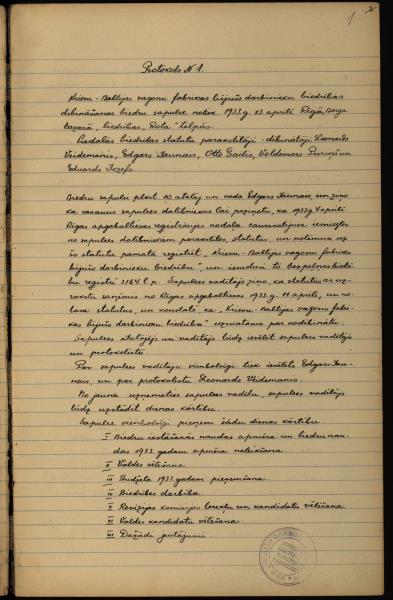 1
Protokols N 1.
Krievu-Baltijas vagonu fabrikas bijušo darbinieku biedrības
dibināšanas biedru sapulce notiek 1933.g. 13 aprilī Rīgā, Berga
bazarā, biedrības "Rota" telpās.
Piedalās biedrības statutu parakstītāji - dibinātāji Leonards
Veidemanis, Edgars Jaunais, Otto Gailis, Voldemars Puriņš un
Eduards Jozefs.
Biedru sapulci plkst. 10 atklāj un vada Edgars Jaunais, un ziņo
ka sasaucis sapulces dalībniekus lai paziņotu, ka 1933g. 4 aprilī
Rīgas apgabaltiesas reģistrācijas nodaļa caurskatījuse iesniegtos
no sapulces dalībniekiem parakstītos, statutus, un nolēmusi uz
šo statutu pamata reģistrēt "Krievu-Baltijas vagonu fabrikas
bijušo darbinieku biedrību", un ievedusi to bezpeļņas biedrī-
bu reģistrī 3164 l.p. Sapulces vadītājs ziņo, ka statutus ar uz-
rakstu saņēmis no Rīgas apgabaltiesas 1933.g. 11 aprilī, un no-
lasa statutus, un konstatē, ka "Krievu-Baltijas vagonu fabri-
kas bijušo darbinieku biedrība" uzskatama par nodibinātu.
Sapulces atklājējs un vadītājs lūdz ievēlēt sapulces vadītāju
un protokolistu.
Par sapulces vadītāju vienbalsīgi tiek ievēlēts Edgars Jau-
nais, un par protokolistu Leonards Veidemanis.
No jauna uzņemoties sapulces vadību, sapulces vadītājs
lūdz uzstādīt dienas kārtību.
Sapulce vienbalsīgi pieņem šādu dienas kārtību.
I Biedru iestāšanās naudas apmēra un biedru nau-
das 1933. gadam apmēra noteikšana.
II Valdes vēlēšana.
III Budžeta 1933. gadam pieņemšana.
IV Biedrības darbība.
V Revizijas komisijas locekļu un kandidatu vēlēšana.
VI Valdes kandidatu vēlēšana.
VII Dažādi jautājumi.